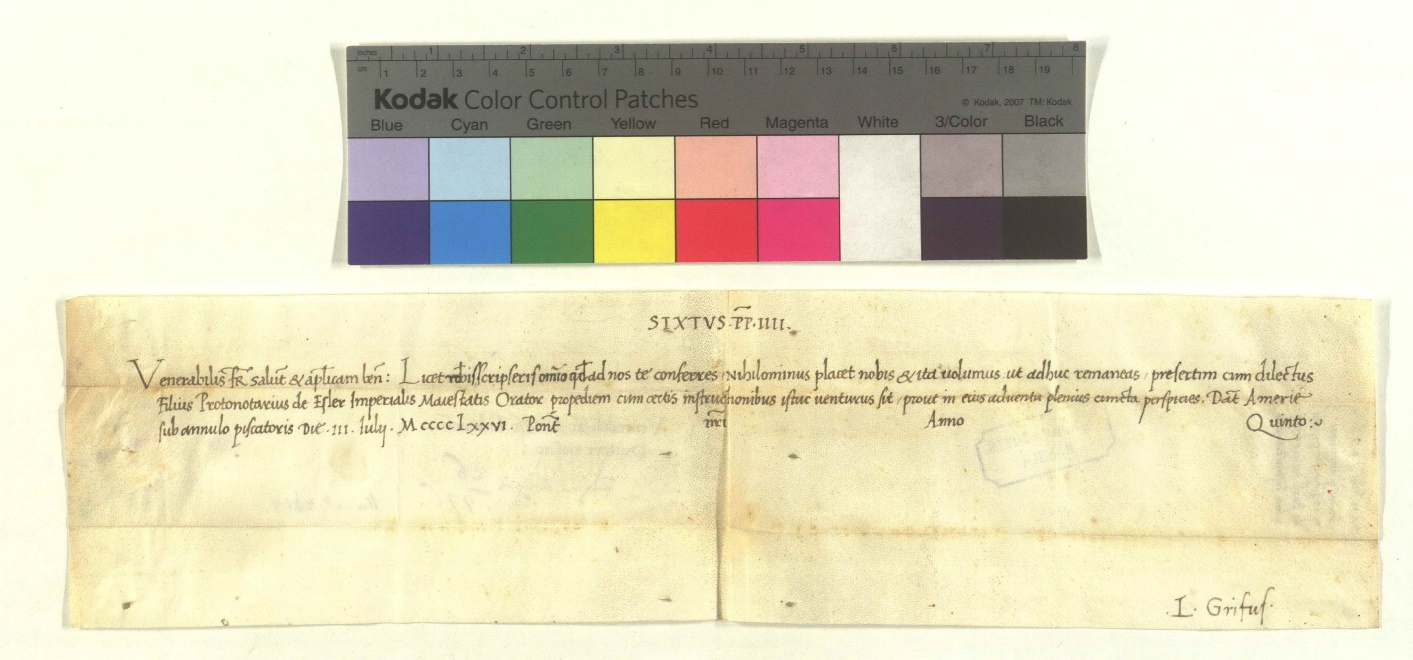 inches 1 2 3 4 5 6 7 8
cm 1 2 3 4 5 6 7 8 9 10 11 12 13 14 15 16 17 18 19
Kodak Color Control Patches © Kodak, 2007 TM: Kodak
Blue Cyan Green Yellow Red Magenta White 3/Color Black
SIXTVS·PP·IIII·
Venerabilis fr̄ salut̄ & aplicam ben̄: Licet scripseris om̄io ad nos te conferres nihilominus placet nobis & ita volumus ut adhuc remaneas / presertim cum dilectus
Filius Protonotarius de Esler Imperialis Maiestatis Orator propediem cum certis instructionibus istuc uenturus sit, prout in eius aduentu plenius cuncta perspicies. Dat̄ Amerie
sub annulo piscatoris Die · III · Iulij · MccccLxxvi · Pont̄ nr̄i Anno Quinto:
L. Grifus